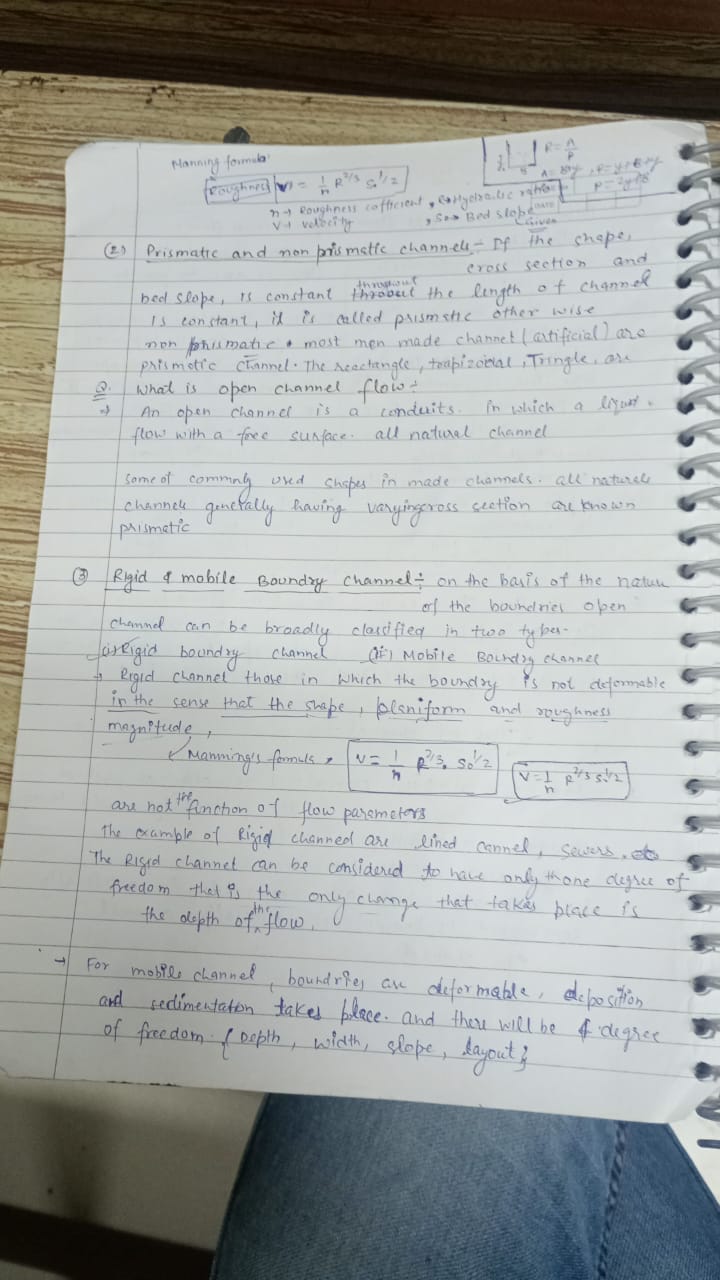 Manning formula
Roughness V = 1/n R^2/3 So^1/2
R = A/P
A = By, P = y+B+y
P = 2y+B
n → Roughness cofficient, R → Hydraulic
V → velocity, So → Bed slope
Given
(2) Prismatic and non prismatic channels :- If the shape,
cross section and
bed slope, is constant throughout the length of channel
is constant, it is called prismatic other wise
non prismatic • most men made channel (artificial) are
prismotic channel. The reactangle, trapizoidal, Tringle, are
Q. What is open channel flow :-
⇒ An open channel is a conduits. in which a liquid
flow with a free surface. all natural channel
some of commanly used shapes in made channels. all naturals
channels generally having varyingcross section are known
prismatic
(3) Rigid & mobile Boundry channel :- on the basis of the nature
of the boundries open
channel can be broadly classified in two types-
(i) Rigid boundry channel (ii) Mobile Boundry channel
→ Rigid channel those in which the boundry is not deformable
in the sense that the shape, planiform and roughness
magnitude,
Manning's formula → V = 1/n R^2/3 . So^1/2
V = 1/n R^2/3 So^1/2
are not the function of flow parameters
The example of Rigid channed are lined cannel, sewers, etc
The Rigid channel can be considered to have only one degree of
freedom that is the only change that takes place is
the depth of the flow.
→ For mobile channel, boundries are deformable, deposition
and sedimentation takes place. and there will be 4 degree
of freedom. { Depth, width, slope, layout }